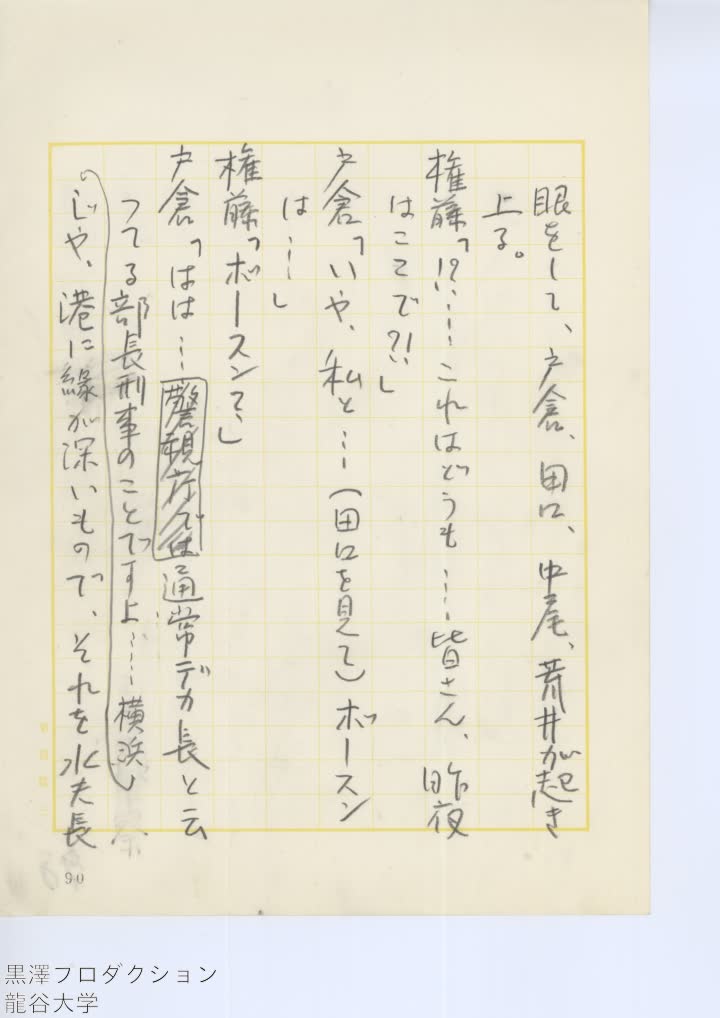 眼をして、戸倉、田口、中尾、荒井が起き
上る。
権藤「!?……これはどうも……皆さん、昨夜
はここで?!」
戸倉「いや、私と……(田口を見て)ボースン
は……」
権藤「ボースンて?」
戸倉「はは…警視庁では通常デカ長と云
つてる部長刑事のことですよ……横浜
じや、港に縁が深いもので、それを水夫長
90
黒澤プロダクション
龍谷大学